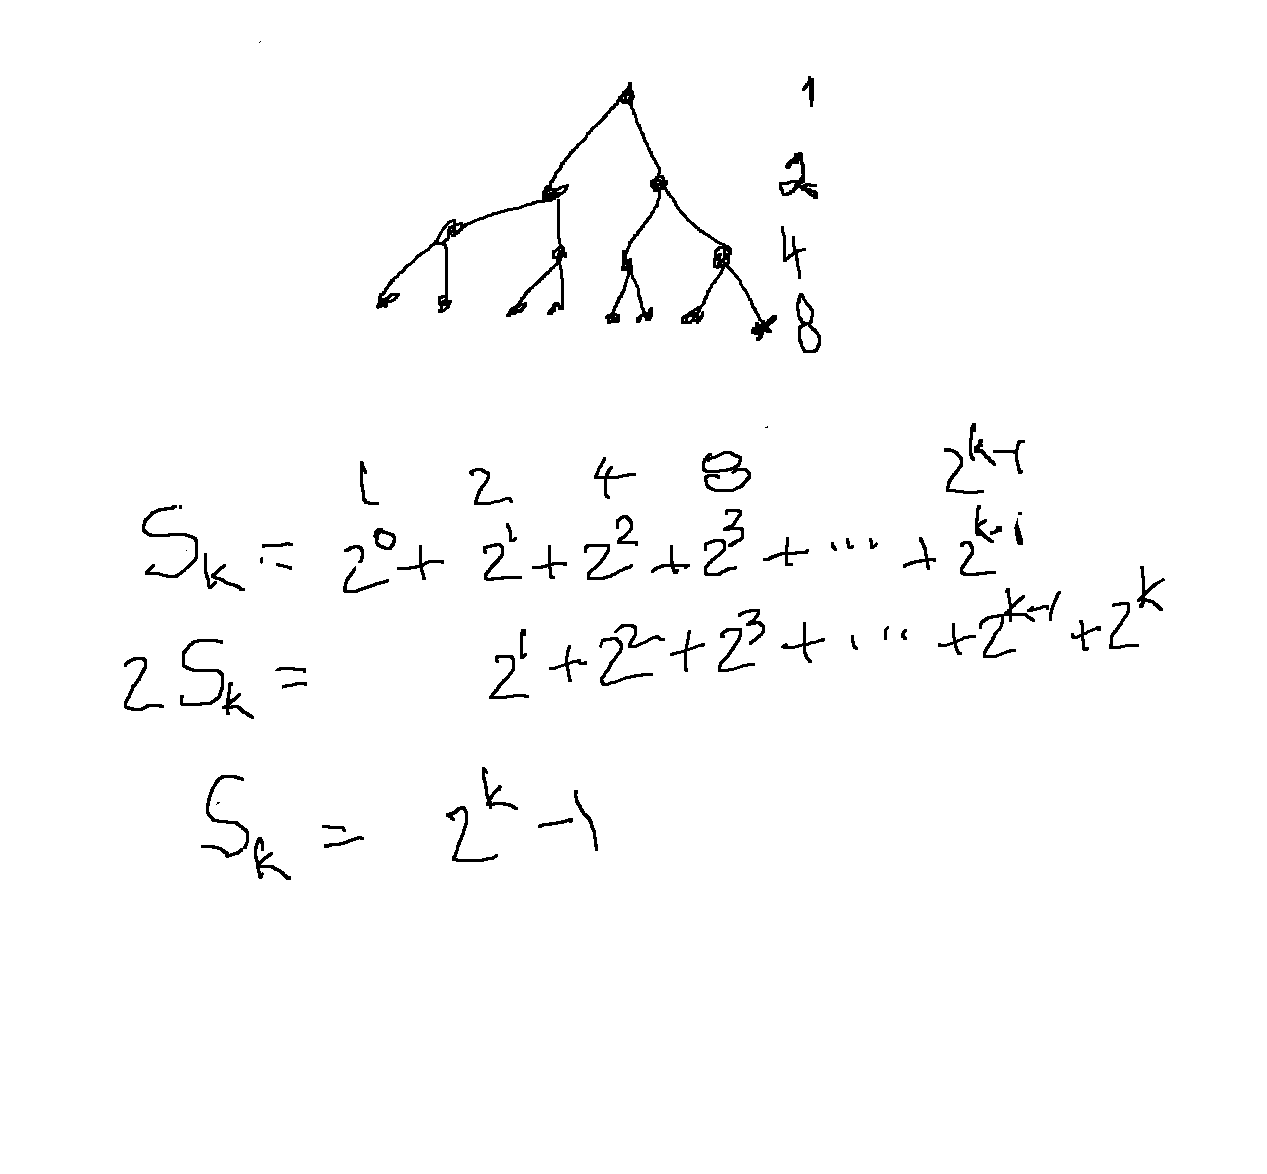 1
2
4
8
1 2 4 8 2^{k-1}
S_k = 2^0 + 2^1 + 2^2 + 2^3 + ... + 2^{k-1}
2 S_k = 2^1 + 2^2 + 2^3 + ... + 2^{k-1} + 2^k
S_k = 2^k - 1